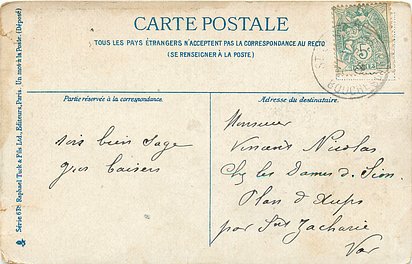 CARTE POSTALE
TOUS LES PAYS ÉTRANGERS N'ACCEPTENT PAS LA CORRESPONDANCE AU RECTO
(SE RENSEIGNER À LA POSTE)
Partie réservée à la correspondance.
Adresse du destinataire.
sois bien sage
gros baisers
Monsieur
Vincent Nicolas
Chez les Dames de Sion
Plan d'Aups
par St Zacharie
Var
Série 618 Raphael Tuck & Fils Ltd., Editeurs, Paris. Un mot à la Poste. (Déposé)
5c